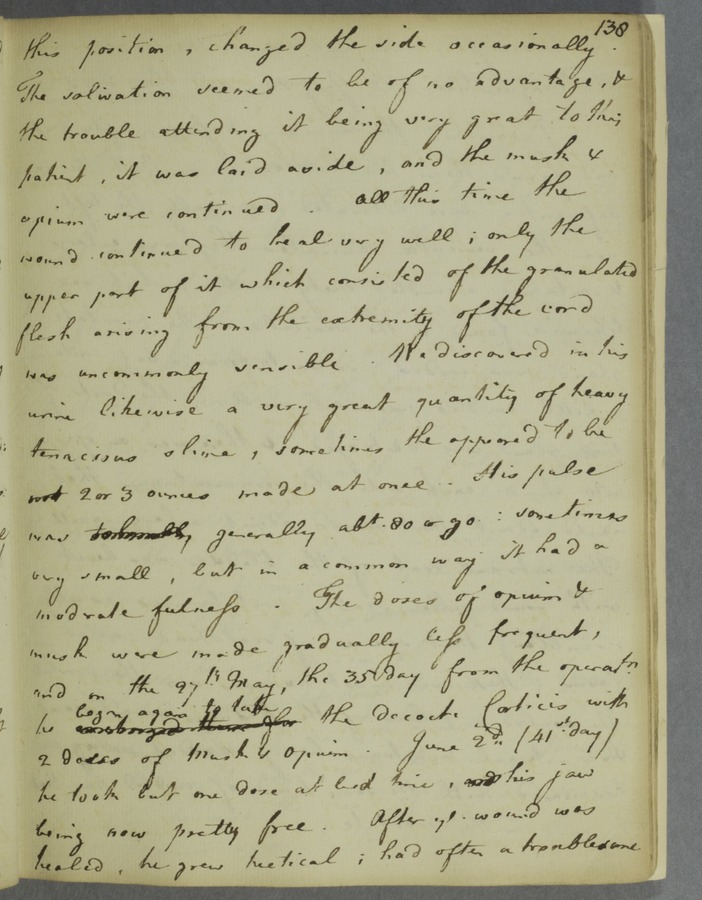 138
this position, & changed the side occasionally.
The salivation seemed to be of no advantage, &
the trouble attending it being very great to this
patient, it was laid aside, and the musk &
opium were continued. All this time the
wound continued to heal very well; only the
upper part of it which consisted of the granulated
flesh arising from the extremity of the cord
was uncommonly sensible. He discovered in his
urine likewise a very great quantity of heavy
tenacious slime, sometimes there appeared to be
2 or 3 ounces made at once. His pulse
was generally abt. 80 or 90: sometimes
very small, but in a common way it had a
moderate fulness. The doses of opium &
musk were made gradually less frequent,
and on the 27th May, the 35 day from the operatn.
he began again to take the decoct. Corticis with
2 doses of Musk & Opium. June 2d. (41st day)
he took but one dose at bed time, his jaw
being now pretty free. After ye. wound was
healed, he grew hectical; had often a troublesome